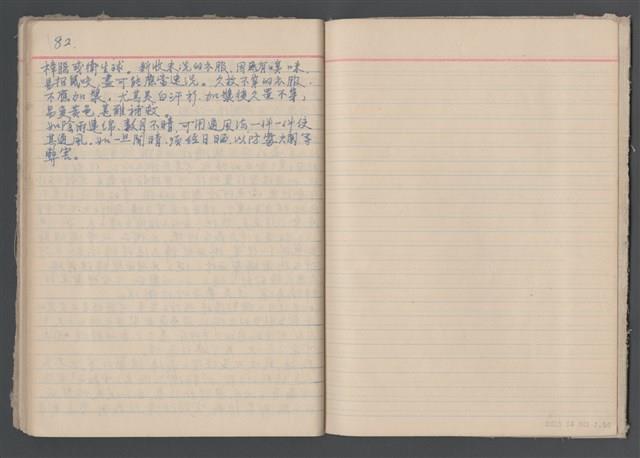 82.
樟腦或衛生球。新收未洗的衣服，因為有嗅味，
易招鼠咬，盡可能應當速洗。久放不穿的衣服，
不應加漿，尤其是白汗衫，加漿後久置不穿，
易變黃色，是難補救。
如陰雨連綿，數月不晴，可用通風法一件一件使
其通風。如一旦開晴，須經日晒，以防霉爛等
弊害。